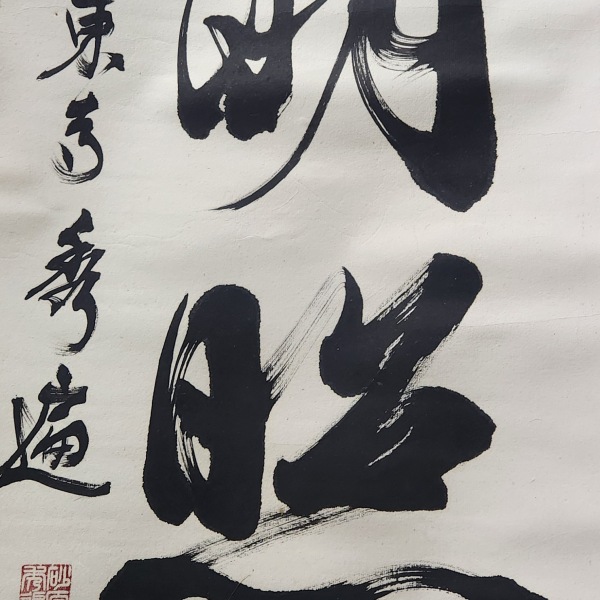 明照
東寺秀遍